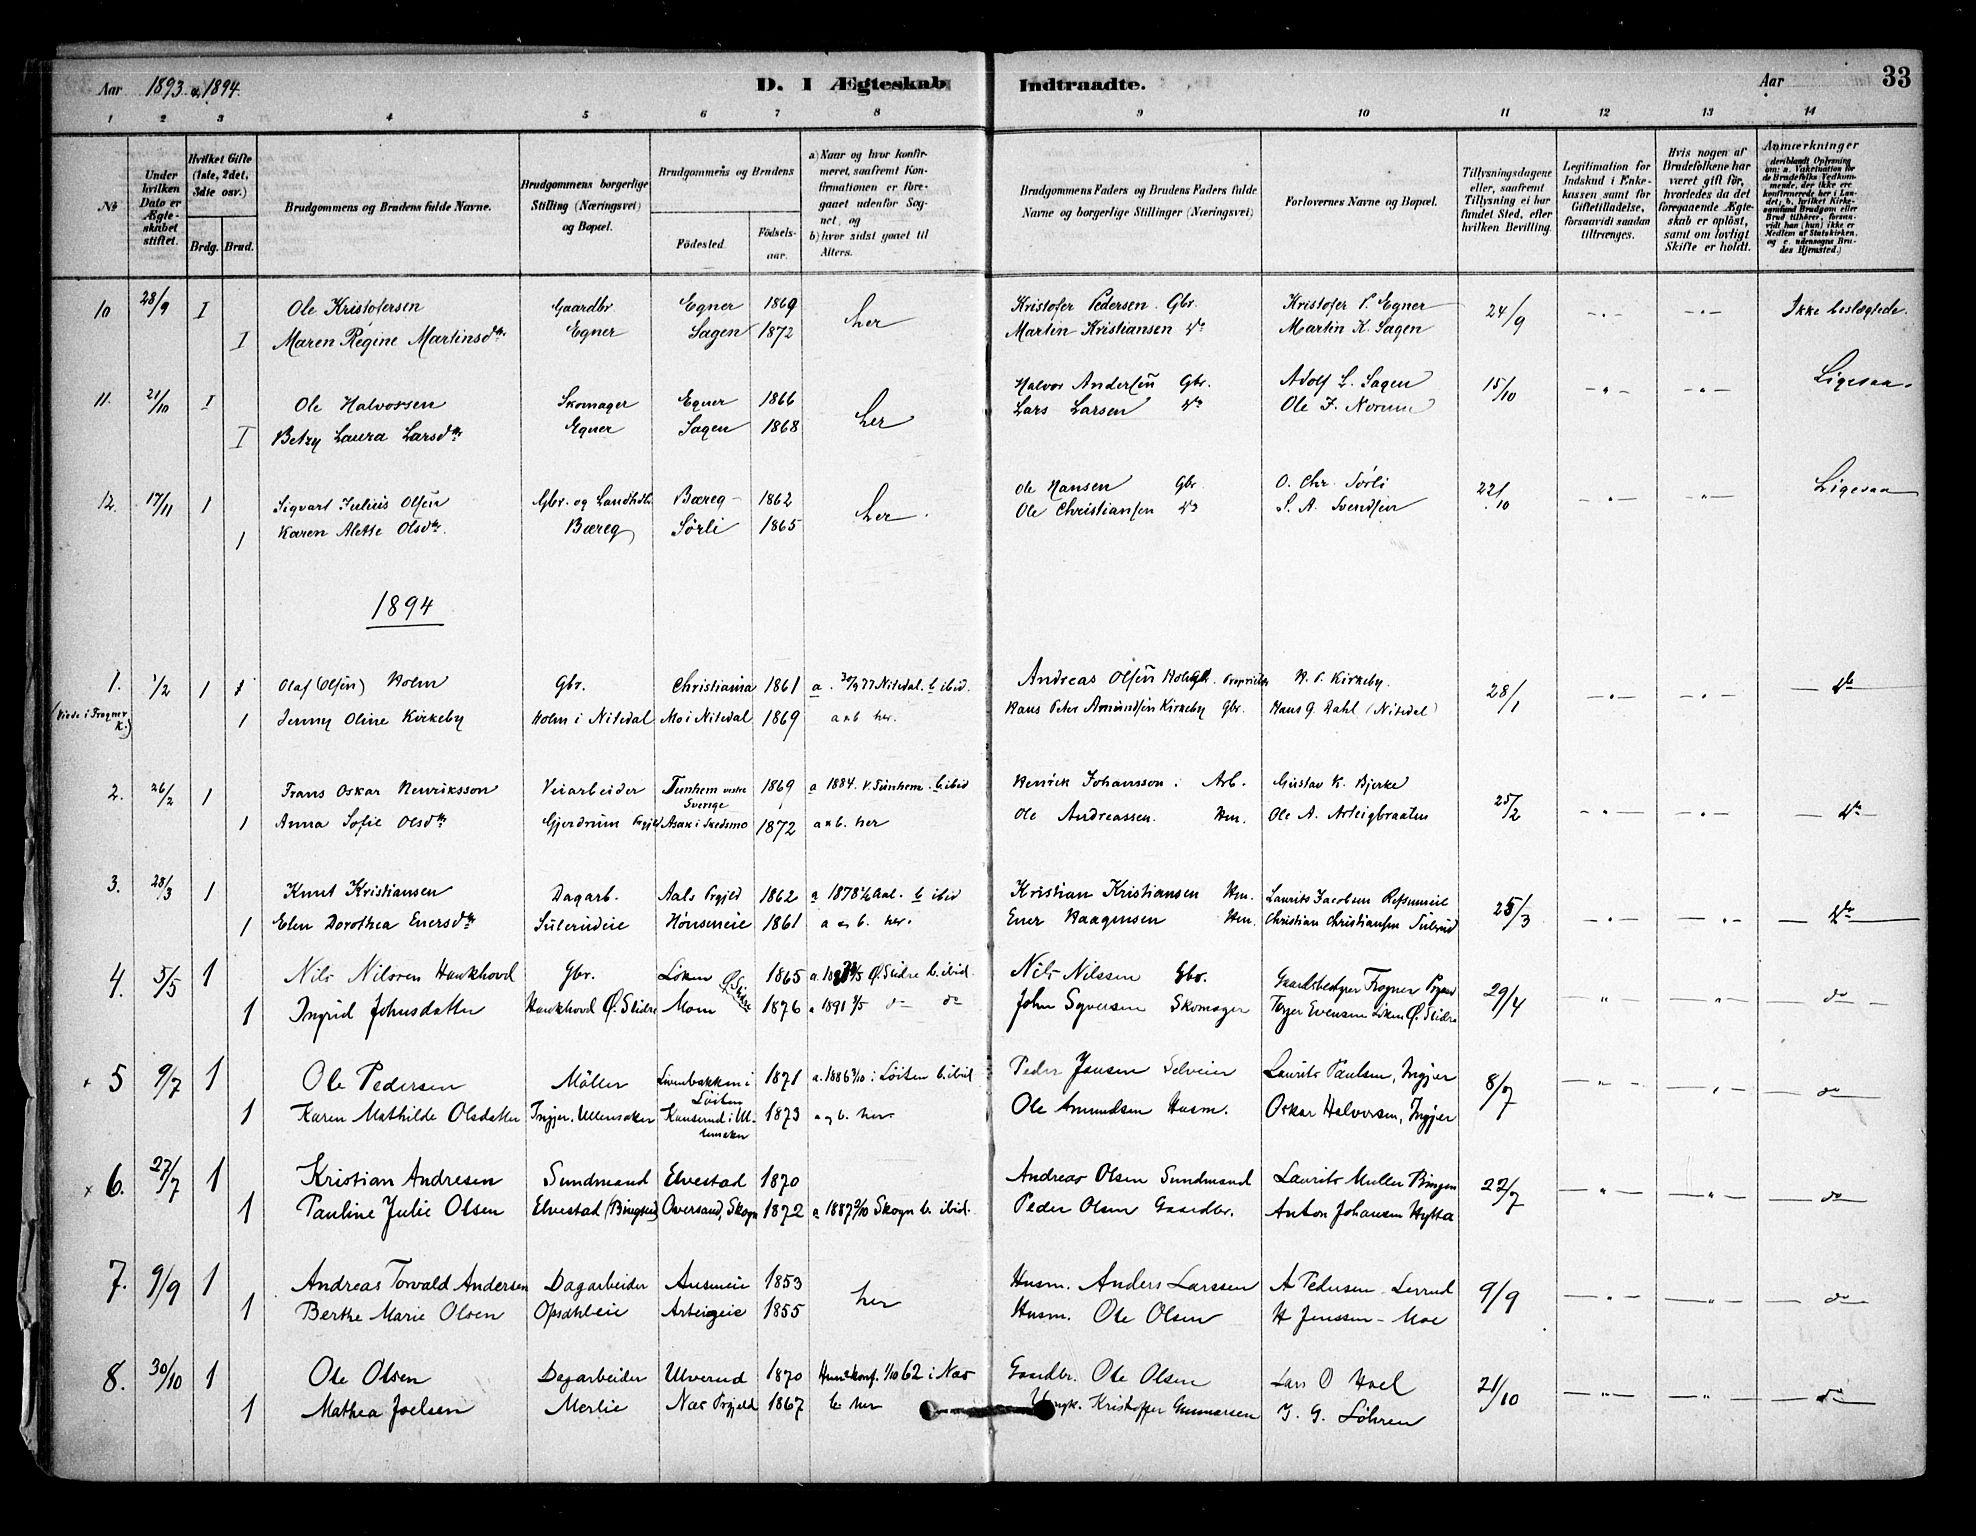 Aar 1893 & 1894. D. I Ægteskab Indtraadte. Aar 33
1 2 3 4 5 6 7 8 9 10 11 12 13 14
№
Under hvilken Dato er Ægteskabet stiftet.
Hvilket Gifte (1ste, 2det, 3die osv.)
Brdg. Brud.
Brudgommens og Brudens fulde Navne.
Brudgommens borgerlige Stilling (Næringsvei) og Bopæl.
Brudgommens og Brudens
Fødested. Fødselsaar.
a) Naar og hvor konfirmeret, saafremt Konfirmationen er foregaaet udenfor Sognet, og
b) hvor sidst gaaet til Alters.
Brudgommens Faders og Brudens Faders fulde Navne og borgerlige Stillinger (Næringsvei)
Forlovernes Navne og Bopæl.
Tillysningsdagene eller, saafremt Tillysning ei har fundet Sted, efter hvilken Bevilling.
Legitimation for Indskud i Enkekassen samt for Giftetilladelse, forsaavidt saadan tiltrænges.
Hvis nogen af Brudefolkene har været gift før, hvorledes da det foregaaende Ægteskab er opløst, samt om lovligt Skifte er holdt.
Anmærkninger (deriblandt Oplysning om: a. Vakcination for de Brudefolks Vedkommende, der ikke ere konfirmerede her i Landet, b. hvilket Kirkesamfund Brudgom eller Brud tilhører, forsaavidt han (hun) ikke er Medlem af Statskirken, og c. udensogns Brudes Hjemsted.)
10 28/9 I Ole Kristofersen Gaardbr Egner 1869 her Kristofer Pedersen. Gbr. Kristofer P. Egner 24/9 Ikke beslægtede.
I Maren Regine Martinsdtr Egner Sagen 1872 Martin Kristiansen do Martin K. Sagen
11. 21/10 I Ole Halvorsen Skomager Egner 1866 her Halvor Andersen Gbr. Adolf L. Sagen 15/10 " " Ligesaa.
I Betzy Laura Larsdtr Egner Sagen 1868 Lars Larsen do Ole J. Norum
12. 17/11 1 Sigvart Julius Olsen Gbr. og Landhdl. Bæreg 1862 her. Ole Hansen Gbr. O. Chr. Sørli 22/10 " " Ligesaa
1 Karen Alette Olsdtr. Bæreg Sörli 1865 Ole Christiansen do S. A. Svendsen
1894
1. 1/2 1 1 Olaf (Olsen) Holm Gbr. Christiania 1861 a. 30/9 77 Nitedal. b ibid. Andreas Olsen Proprietær H. P. Kirkeby. 28/1 do
(Viede i Frogner K.) 1 Jenny Oline Kirkeby Holm i Nitedal Mo i Nitedal 1869 a & b her. Hans Peter Amundsen Kirkeby Gbr. Hans G. Dahl (Nitedal)
2. 26/2 1 Frans Oskar Henriksson Veiarbeider Tunhem vestre Sverige 1869 a 1884. V. Tunhem. b. ibid Henrik Johansson Arb. Gustav K. Bjerke 25/2 do
1 Anna Sofie Olsdtr Gjerdrum Prgjld Asak i Skedsmo 1872 a & b. her Ole Andreassen. Hm. Ole A. Arteigbraaten
3. 28/3 1 Knut Kristiansen Dagarb. Aals Prgjld 1862 a 1878 Aal. b ibid Kristian Kristiansen Hm. Laurits Jacobsen 25/3 do
1 Elen Dorothea Enersdtr Hønseneie 1861 a & b. her. Ener Haagensen Hm. Christian Christiansen
4. 5/5 1 Nils Nilsen Haukhovd Gbr. Løken Ø. Slidre 1865 Ø. Slidre b. ibid. Nils Nilssen Gbr. Gaardsbestyrer Frogner 29/4 " " do
1 Ingrid Johnsdatter Haukhovd Ø. Slidre Moen 1876 a 1891 do do John Syversen Skomager Evensen Løken Ø. Slidre
5 9/7 1 Ole Pedersen Möller i Löiten 1871 a. 1886 i Löiten b. ibid Peder Jansen Selveier Laurits Paulsen, Ingjer 8/7 " do
1 Karen Mathilde Olsdatter Ingjer. Ullensaker Kanserud i Ullensaker 1873 a og b. her Ole Amundsen Husm. Oskar Halvorsen, Ingjer
6. 27/7 1 Kristian Andresen Sundmand Elvestad 1870 Andreas Olsen Sundmand Laurits Muller Bingen 22/7 " " do
1 Pauline Julie Olsen Elvestad Oversand, Skogn 1872 a 1887 Skogn b. ibid. Peder Olsen Gaardbr. Anton Johansen Hytta
7. 9/9 1 Andreas Torvald Andersen Dagarbeider 1853 her Husm. Anders Larssen A Pedersen Lerrud 9/9 " do
1 Berthe Marie Olsen Opsahleie Arteigeie 1855 Husm. Ole Olsen H Jenssen - Moe
8. 30/10 1 Ole Olsen Dagarbeider Ulverud 1870 i Næs Gaardbr. Ole Olsen Lars O Hoel 21/10 do
1 Mathea Joelsen Merlie Næs Prgjeld 1867 b her Kristoffer Gunnarsen J. G. Löhren